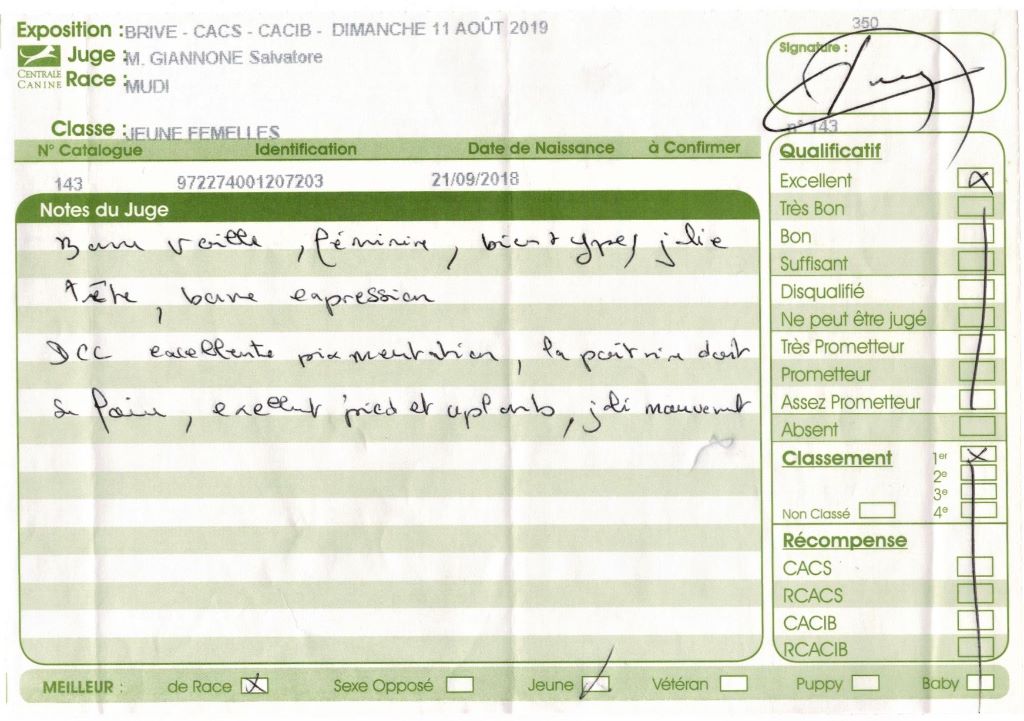 350
Exposition : BRIVE - CACS - CACIB - DIMANCHE 11 AOÛT 2019
Juge : M. GIANNONE Salvatore
CENTRALE CANINE
Race : MUDI
Signature :
Classe : JEUNE FEMELLES
n° 143
N° Catalogue Identification Date de Naissance à Confirmer
143 972274001207203 21/09/2018
Notes du Juge
Bonne taille, féminine, bien typée, jolie
tête, bonne expression
DCC excellente pigmentation, la poitrine doit
se faire, exellent pied et aplombs, joli mouvement
Qualificatif
Excellent X
Très Bon
Bon
Suffisant
Disqualifié
Ne peut être jugé
Très Prometteur
Prometteur
Assez Prometteur
Absent
Classement 1er X
2e
3e
Non Classé 4e
Récompense
CACS
RCACS
CACIB
RCACIB
MEILLEUR : de Race X Sexe Opposé Jeune Vétéran Puppy Baby